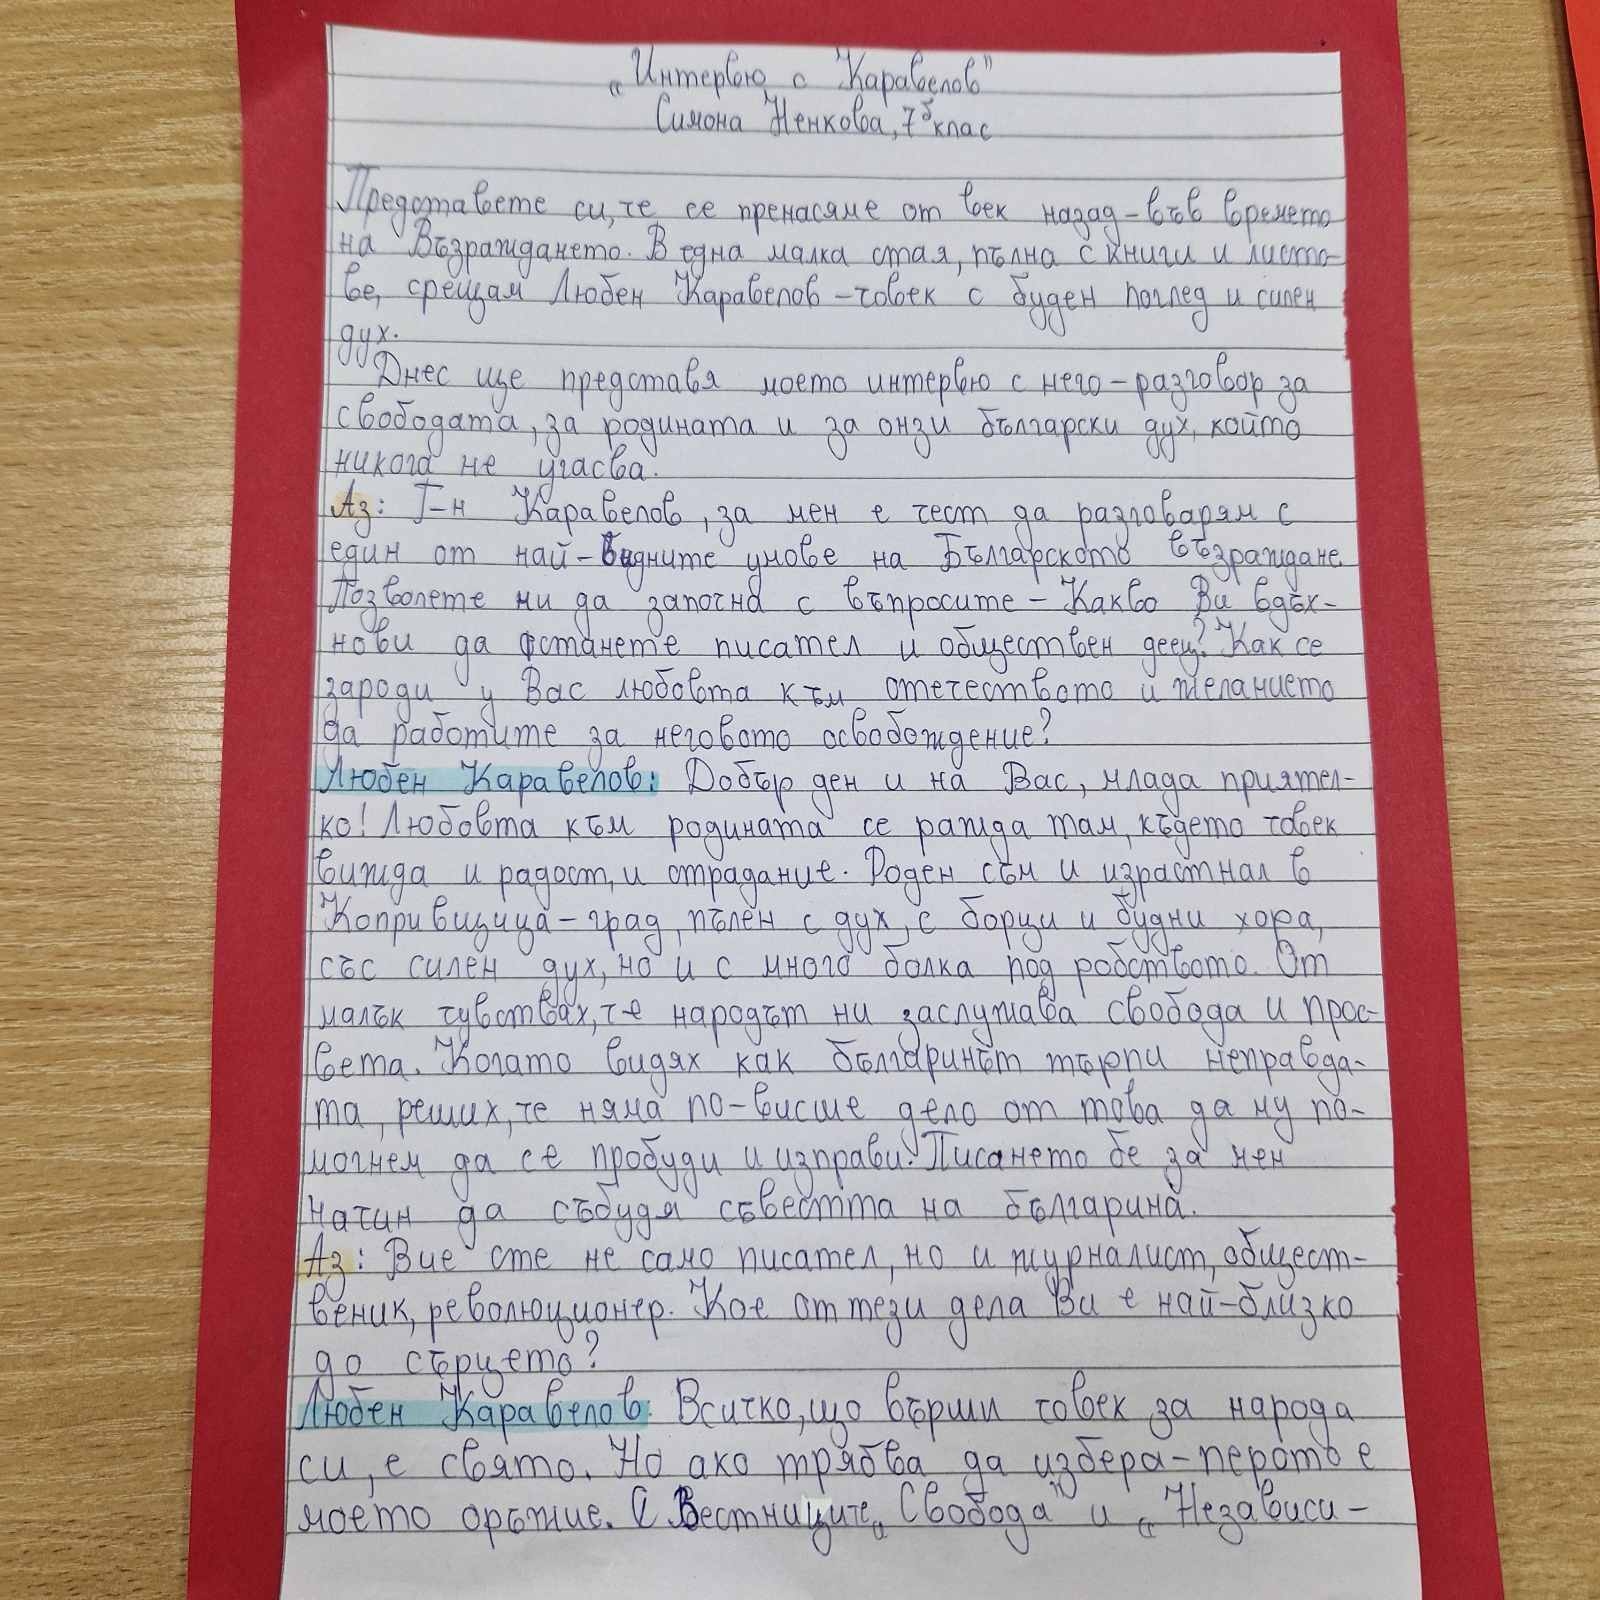 „Интервю с Каравелов"
Симона Ненкова, 7б клас
Представете си, че се пренасяме от век назад – във времето
на Възраждането. В една малка стая, пълна с книги и листо-
ве, срещам Любен Каравелов – човек с буден поглед и силен
дух.
Днес ще представя моето интервю с него – разговор за
свободата, за родината и за онзи български дух, който
никога не угасва.
Аз: Г-н Каравелов, за мен е чест да разговарям с
един от най-видните умове на Българското възраждане.
Позволете ми да започна с въпросите – Какво Ви вдъх-
нови да станете писател и обществен деец? Как се
зароди у Вас любовта към отечеството и желанието
да работите за неговото освобождение?
Любен Каравелов: Добър ден и на Вас, млада приятел-
ко! Любовта към родината се ражда там, където човек
вижда и радост, и страдание. Роден съм и израстнал в
Копривщица – град, пълен с дух, с борци и будни хора,
със силен дух, но и с много болка под робството. От
малък чувствах, че народът ни заслужава свобода и прос-
вета. Когато видях как българинът търпи неправда-
та, реших, че няма по-висше дело от това да му по-
могнем да се пробуди и изправи. Писането бе за мен
начин да събудя съвестта на българина.
Аз: Вие сте не само писател, но и журналист, общест-
веник, революционер. Кое от тези дела Ви е най-близко
до сърцето?
Любен Каравелов: Всичко, що върши човек за народа
си, е свято. Но ако трябва да избера – перото е
моето оръжие. С Вестниците „Свобода" и „Независи-